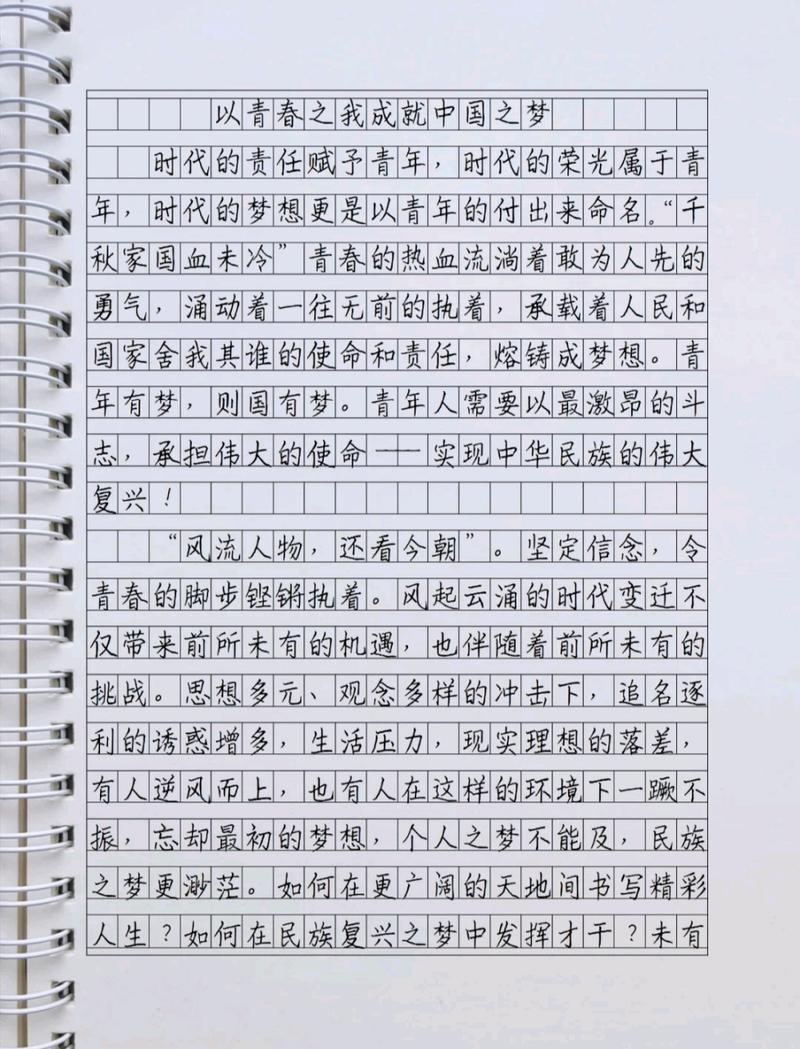 以青春之我成就中国之梦
时代的责任赋予青年，时代的荣光属于青
年，时代的梦想更是以青年的付出来命名。“千
秋家国血未冷”青春的热血流淌着敢为人先的
勇气，涌动着一往无前的执着，承载着人民和
国家舍我其谁的使命和责任，熔铸成梦想。青
年有梦，则国有梦。青年人需要以最激昂的斗
志，承担伟大的使命——实现中华民族的伟大
复兴！
“风流人物，还看今朝”。坚定信念，令
青春的脚步铿锵执着。风起云涌的时代变迁不
仅带来前所未有的机遇，也伴随着前所未有的
挑战。思想多元、观念多样的冲击下，追名逐
利的诱惑增多，生活压力，现实理想的落差，
有人逆风而上，也有人在这样的环境下一蹶不
振，忘却最初的梦想，个人之梦不能及，民族
之梦更渺茫。如何在更广阔的天地间书写精彩
人生？如何在民族复兴之梦中发挥才干？未有